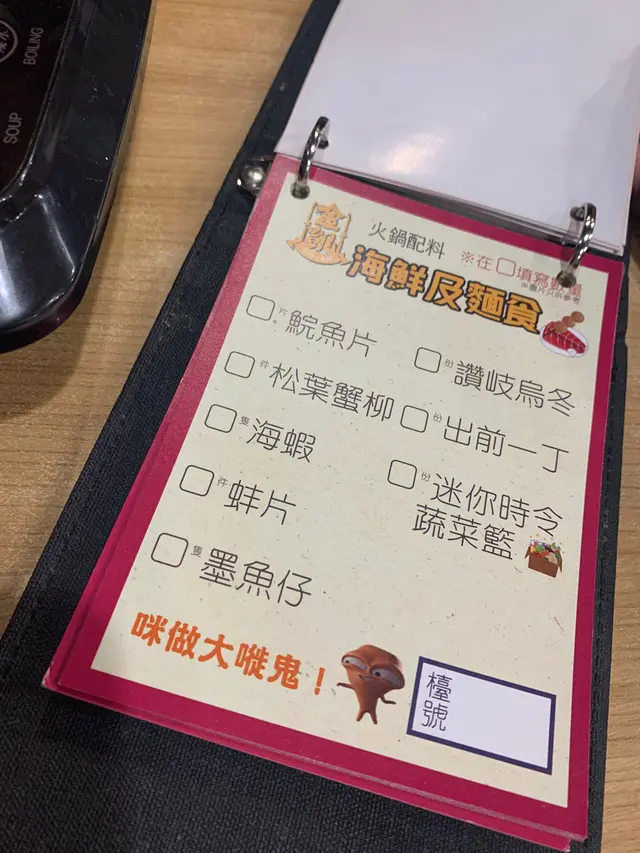 BOILING
SOUP
火鍋配料
※在□填寫數量
※圖片只供參考
海鮮及麵食
□片 鯇魚片
□件 松葉蟹柳
□隻 海蝦
□件 蚌片
□隻 墨魚仔
□份 讚岐烏冬
□份 出前一丁
□份 迷你時令
蔬菜籃
咪做大嘥鬼！
檯
號